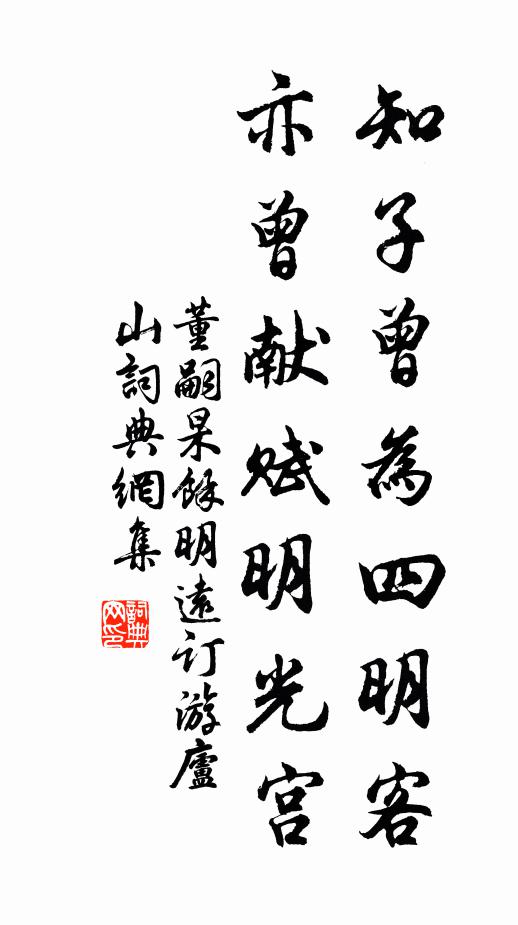 知子曾為四明客
亦曾献赋明光宫
董嗣杲餘明遠訂游廬
山詞典網集
詞典
网印